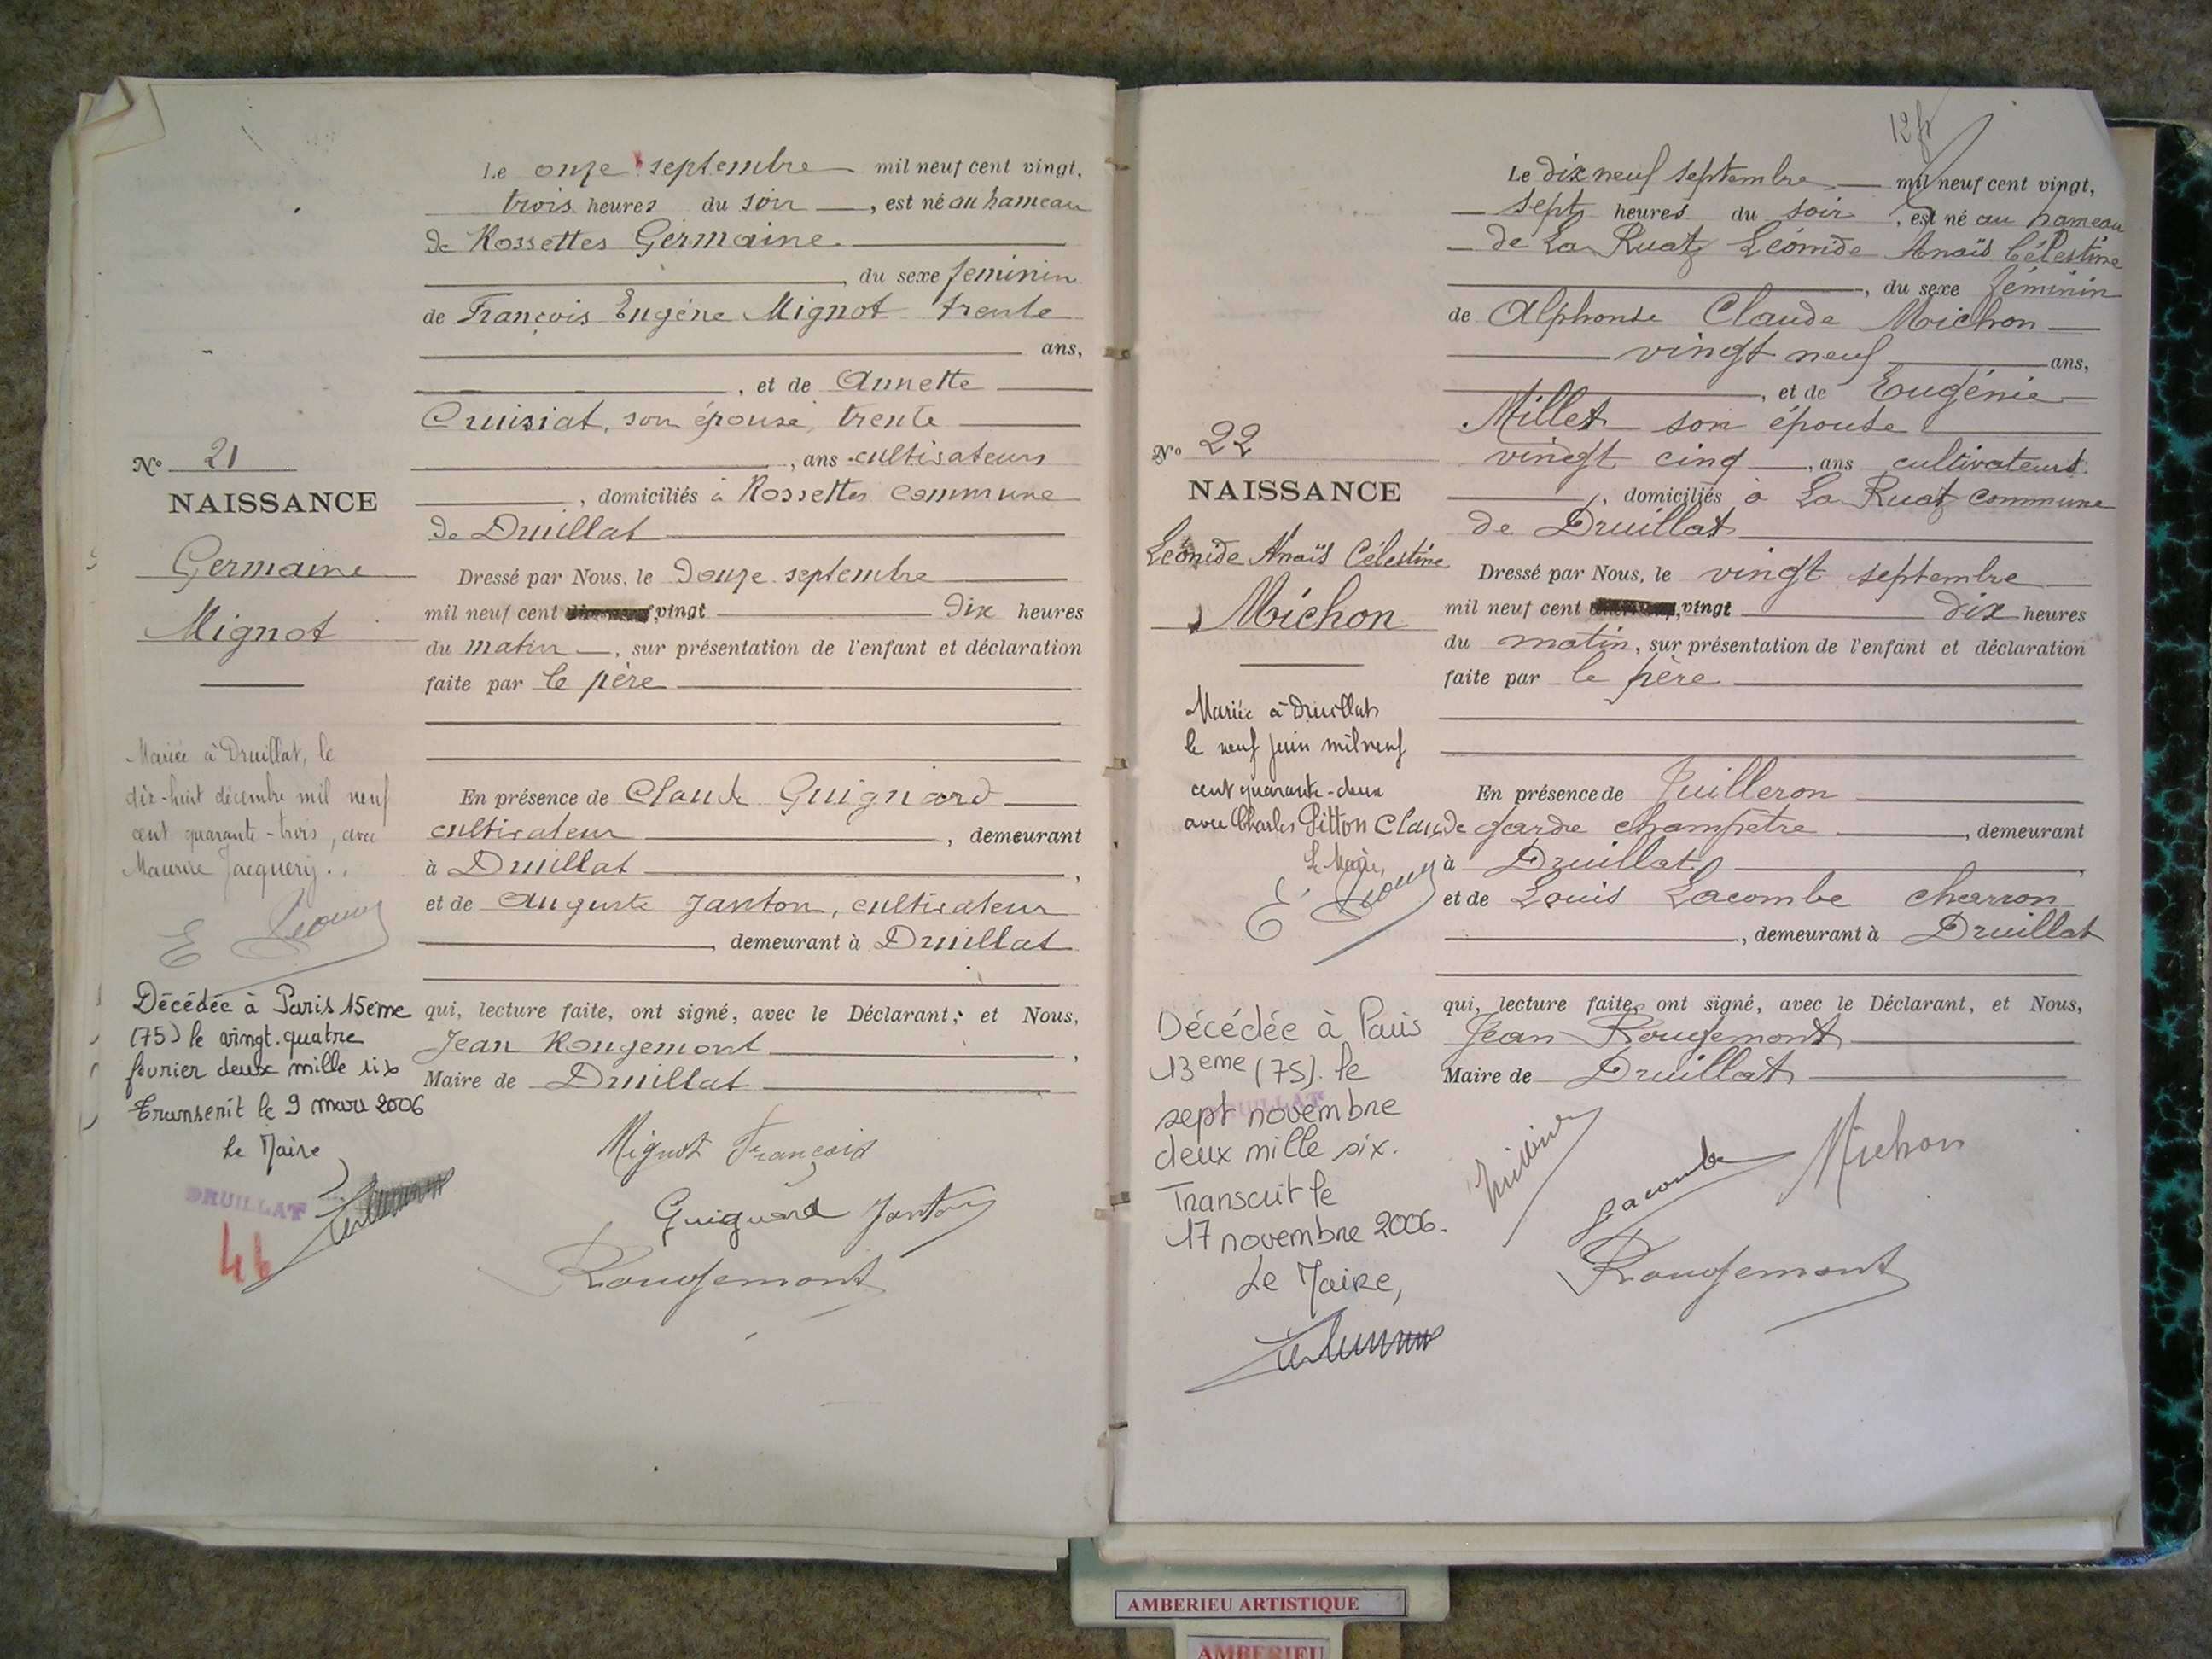 Le onze septembre mil neuf cent vingt,
trois heures du soir, est né au hameau
de Rossettes Germaine
, du sexe feminin
de François Eugène Mignot trente
ans,
, et de Annette
Cruisiat, son épouse, trente
, ans cultivateurs
, domiciliés à Rossettes commune
de Druillat
Dressé par Nous, le douze septembre
mil neuf cent vingt dix heures
du matin, sur présentation de l'enfant et déclaration
faite par le père
En présence de Claude Guignard
cultivateur, demeurant
à Druillat,
et de Auguste Janton, cultivateur
, demeurant à Druillat
qui, lecture faite, ont signé, avec le Déclarant, et Nous,
Jean Rougemont,
Maire de Druillat
Mignot François
Guignard Janton
Rougemont
No 21
NAISSANCE
Germaine
Mignot
Mariée à Druillat, le
dix-huit décembre mil neuf
cent quarante-trois, avec
Maurice Jacquery.
Décédée à Paris 15ème
(75) le vingt.quatre
février deux mille six
Transcrit le 9 mars 2006
Le Maire
DRUILLAT
46
12
Le dix neuf septembre mil neuf cent vingt,
sept heures du soir, est né au hameau
de La Ruat Léonide Anaïs Célestine
, du sexe féminin
de Alphonse Claude Michon
vingt neuf ans,
, et de Eugénie
Millet son épouse
vingt cinq, ans cultivateurs
, domiciliés à La Ruat commune
de Druillat
Dressé par Nous, le vingt septembre
mil neuf cent vingt dix heures
du matin, sur présentation de l'enfant et déclaration
faite par le père
En présence de Juilleron
Claude garde champêtre, demeurant
à Druillat,
et de Louis Lacombe charron
, demeurant à Druillat
qui, lecture faite, ont signé, avec le Déclarant, et Nous,
Jean Rougemont
Maire de Druillat
Lacombe
Michon
Rougemont
No 22
NAISSANCE
Léonide Anaïs Célestine
Michon
Mariée à Druillat
le neuf juin mil neuf
cent quarante-deux
avec Charles Pitton
Le Maire,
Décédée à Paris
13eme (75). le
sept novembre
deux mille six.
Transcrit le
17 novembre 2006.
Le Maire,
DRUILLAT
AMBERIEU ARTISTIQUE
AMBERIEU